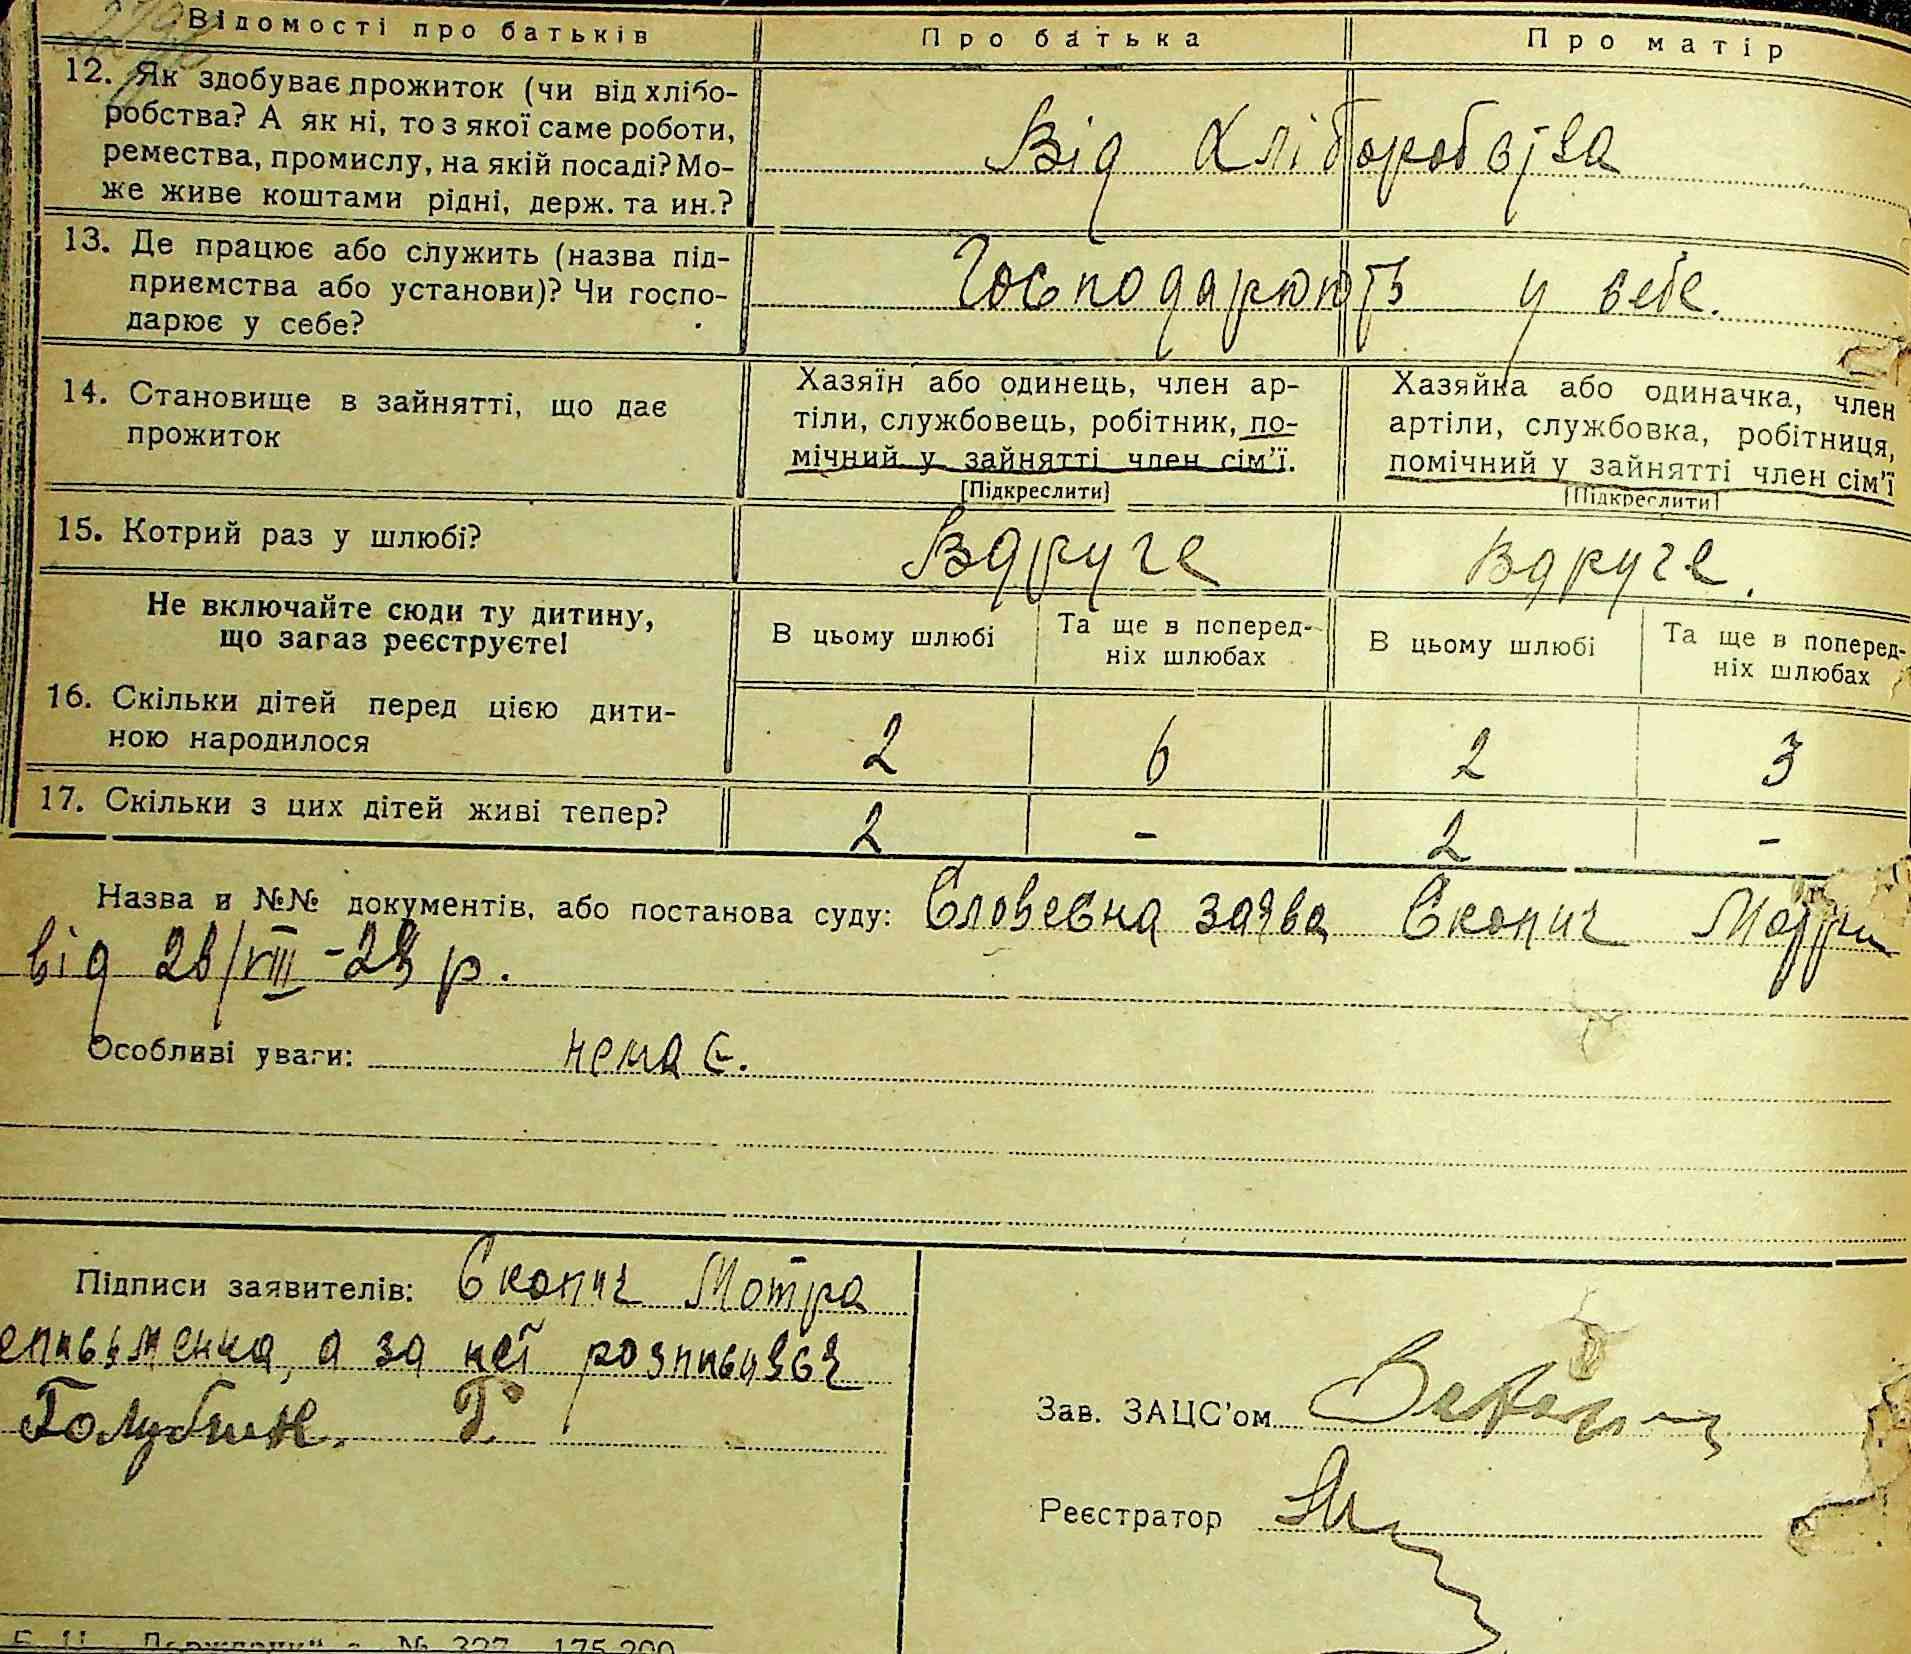 Відомості про батьків Про батька Про матір
12. Як здобуває прожиток (чи від хлібо-
робства? А як ні, то з якої саме роботи,
ремества, промислу, на якій посаді? Мо-
же живе коштами рідні, держ. та ин.?
Від хліборобства
13. Де працює або служить (назва під-
приємства або установи)? Чи госпо-
дарює у себе?
Господарюють у себе.
14. Становище в зайнятті, що дає
прожиток
Хазяїн або одинець, член ар-
тіли, службовець, робітник, по-
мічний у зайнятті член сім'ї.
[Підкреслити]
Хазяйка або одиначка, член
артіли, службовка, робітниця,
помічний у зайнятті член сім'ї
[Підкреслити]
15. Котрий раз у шлюбі? Вдруге Вдруге.
Не включайте сюди ту дитину,
що зараз реєструєте!
В цьому шлюбі
Та ще в поперед-
ніх шлюбах
В цьому шлюбі
Та ще в поперед-
ніх шлюбах
16. Скільки дітей перед цією дити-
ною народилося
2 6 2 3
17. Скільки з цих дітей живі тепер? 2 - 2 -
Назва и №№ документів, або постанова суду: Словесна заява Скопич Мотри
від 28/VIII - 28 р.
Особливі уваги: немає.
Підписи заявителів: Скопич Мотра
еписьменна, а за неї розписався
Голубник. Г.
Зав. ЗАЦС'ом
Реєстратор
№ 327 175.200